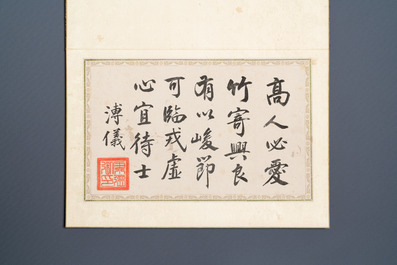 高人必愛
竹寄興良
有以峻節
可臨戎虛
心宜待士
溥儀